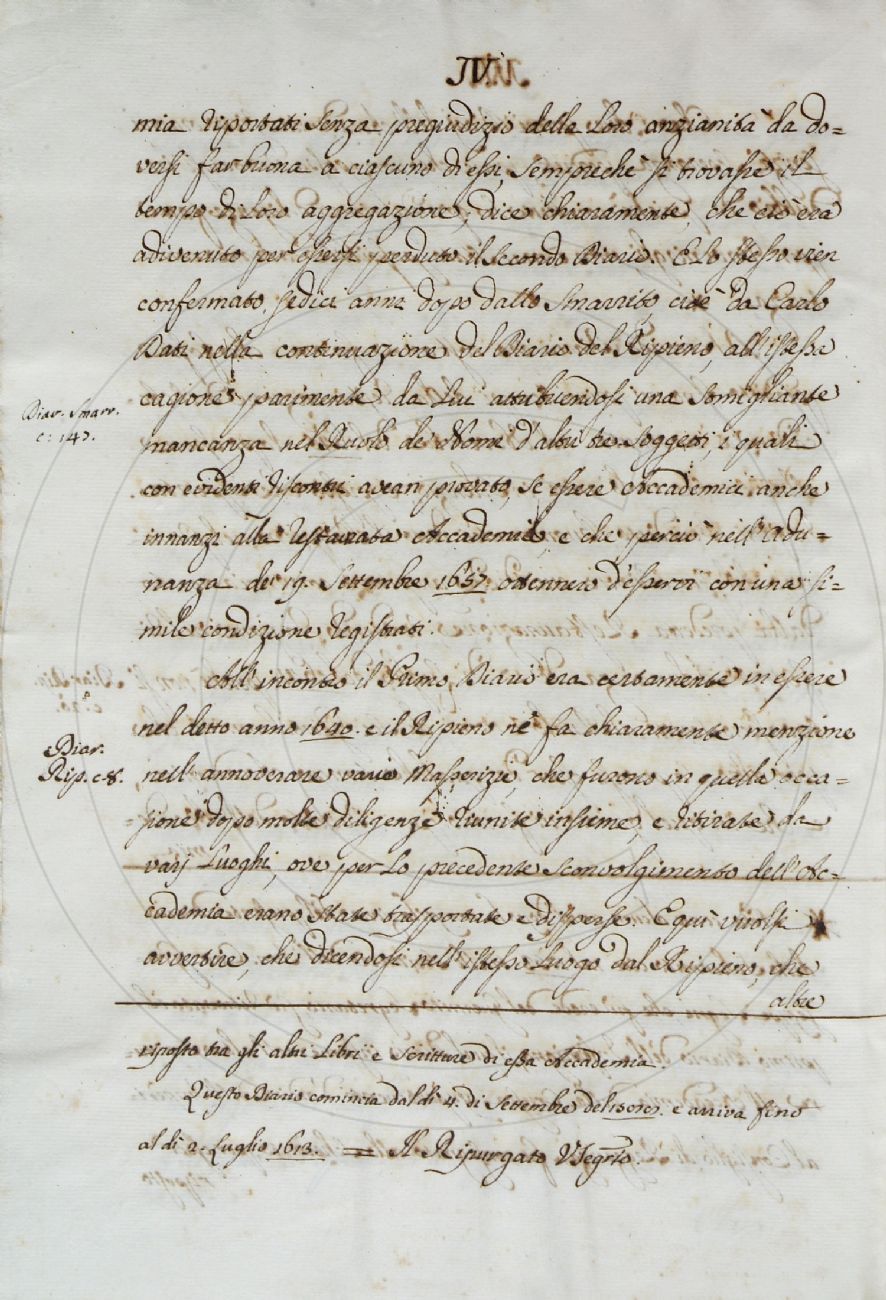 IV.
mia riportati senza pregiudizio della Loro anzianità da do=
versi far buona a ciascuno di essi, sempreché si trovasse il
tempo di Loro aggregazione; dice chiaramente, che ciò era
adivenuto per essersi perduto il Secondo Diario. E lo stesso vien
confermato sedici anni dopo dallo Smarrito, cioè da Carlo
Dati nella continuazione del Diario del Ripieno, all'istessa
cagione parimente da Lui attribuendosi una somigliante
Diar. Smarr.
c: 147.
mancanza nel Ruolo de' Nomi d'altri tre Soggetti, i quali
con evidenti riscontri avean provato, se essere Accademici anche
innanzi alla restaurata Accademia, e che perciò nell'Adu=
nanza de' 19. Settembre 1657. ottennero d'esservi con una si=
mile condizione registrati.
All'incontro il Primo Diario era certamente in essere
nel detto anno 1640. e il Ripieno ne fa chiaramente menzione
Diar.
Rip. c. 8.
nell'annoverare varie Masserizie, che furono in quella occa=
sione dopo molte diligenze riunite insieme, e ritirate da
varj Luoghi, ove per lo precedente sconvolgimento dell'Ac=
cademia erano state trasportate e disperse. E quì vuolsi
avvertire, che dicendosi nell'istesso Luogo dal Ripieno, che
altre
riposto tra gli altri Libri e Scritture di essa Accademia.
Questo Diario comincia dal dì 4. di Settembre del e arriva fino
al dì 2. Luglio 1613. = Il Ripurgato V. Segrio.